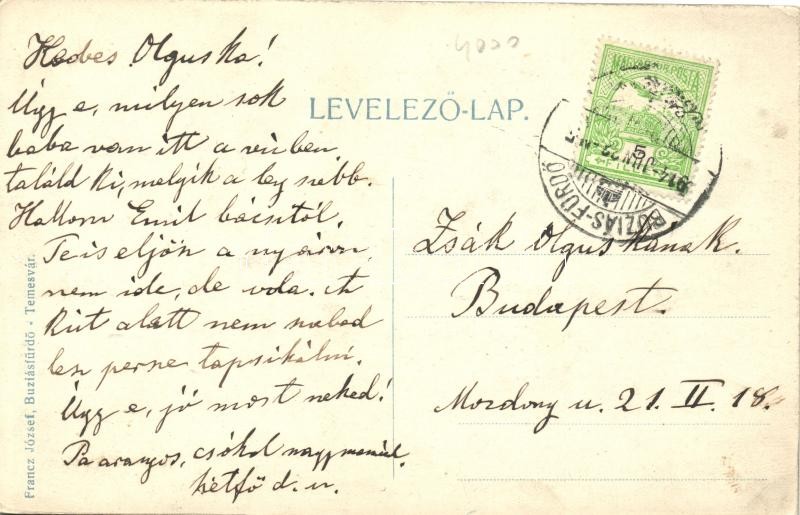 4000
Kedves Olguska!
Ugy e, milyen sok
baba van itt a vizben
találd ki, melyik a legszebb.
Hallom Emil bácsitól,
Te is eljön a nyáron
nem ide, de oda. A
kút alatt nem szabad
lesz persze tapsikálni.
Ugy e, jó most neked!
Pa aranyos, csókol nagymamád.
hétfő d. u.
LEVELEZŐ-LAP.
MAGYAR KIR. POSTA
914 JUN 22
BUZIÁS-FÜRDŐ
Zsák Olguskának.
Budapest.
Mozdony u. 21. II. 18.
Francz József, Buziásfürdő - Temesvár.